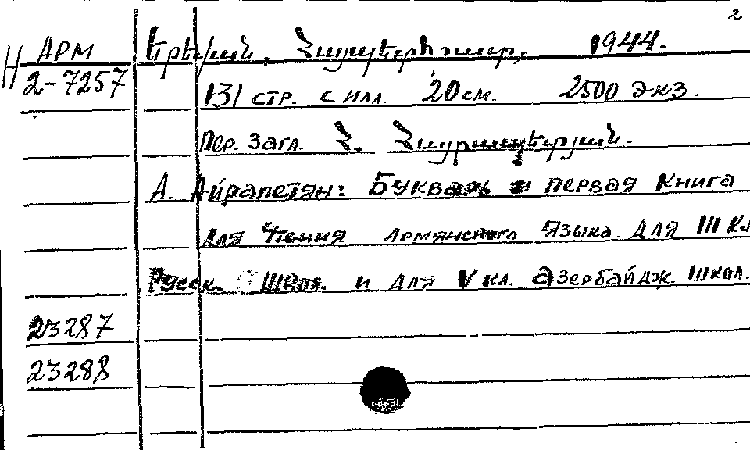 2
Н АРМ Երևան, Հայպետհրատ, 1944.
2-7257 131 стр. с илл. 20 см. 2500 экз.
Пер. загл. Հ. Հայրապետյան.
А. Айрапетян: Букварь и первая книга
для чтения армянского языка для III кл
Русск. школ. и для V кл. Азербайдж. школ.
23287
23288